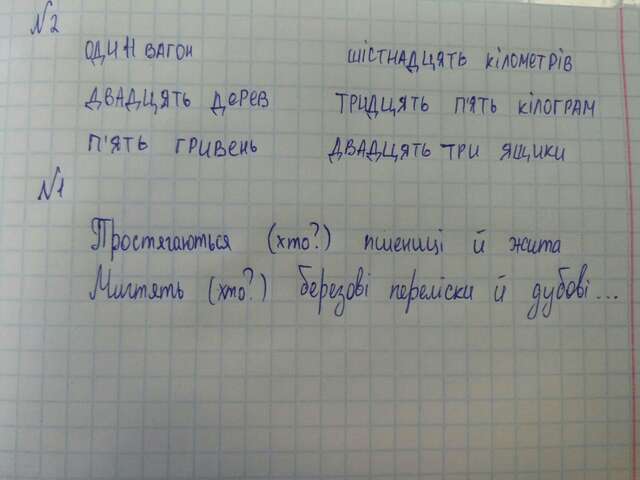 №2
ОДИН ВАГОН ШІСТНАДЦЯТЬ КІЛОМЕТРІВ
ДВАДЦЯТЬ ДЕРЕВ ТРИДЦЯТЬ П'ЯТЬ КІЛОГРАМ
П'ЯТЬ ГРИВЕНЬ ДВАДЦЯТЬ ТРИ ЯЩИКИ
№1
Простягаються (хто?) пшениці й жита
Миготять (хто?) березові переліски й дубові...